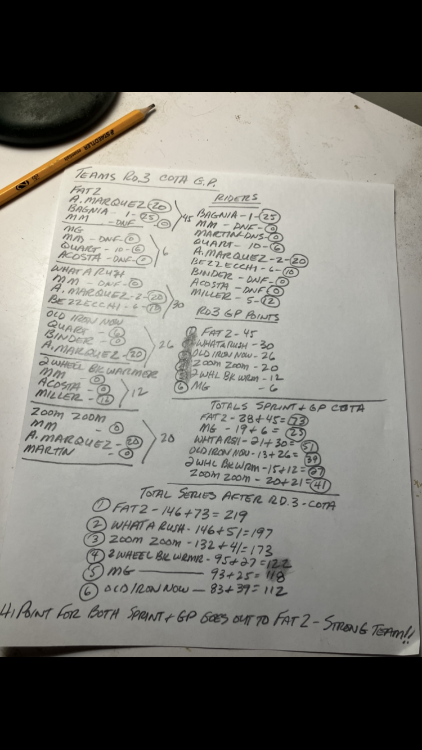 TEAMS RD.3 COTA G.P.
FAT 2
A. MARQUEZ 20
BAGNIA - 1 - 25
MM - DNF - 0
45
MG
MM - DNF - 0
QUART - 10 - 6
ACOSTA - DNF - 0
6
WHAT A RUSH
MM - DNF - 0
A. MARQUEZ - 2 - 20
BEZZECCHI - 6 - 10
30
OLD IRON NOW
QUART 6
BINDER - 0
A. MARQUEZ - 20
26
2 WHEEL BK WARMER
MM - 0
ACOSTA 0
MILLER - 12
12
ZOOM ZOOM
MM - 0
A. MARQUEZ - 20
MARTIN - 0
20
RIDERS
BAGNIA - 1 - 25
MM - DNF - 0
MARTIN - DNS - 0
QUART - 10 - 6
A. MARQUEZ - 2 - 20
BEZZECCHI - 6 - 10
BINDER - DNF - 0
ACOSTA - DNF 0
MILLER - 5 - 12
RD3 GP POINTS
1 FAT 2 - 45
WHAT A RUSH - 30
OLD IRON NOW - 26
ZOOM ZOOM - 20
2 WHL BK WRM - 12
6 MG - 6
TOTALS SPRINT + GP COTA
FAT 2 - 28 + 45 = 73
MG - 19 + 6 = 25
WHAT A RSH - 21 + 30 = 51
OLD IRON NOW - 13 + 26 = 39
2 WHL BK WRM - 15 + 12 = 27
ZOOM ZOOM - 20 + 21 = 41
TOTAL SERIES AFTER RD.3 - COTA
1 FAT 2 - 146 + 73 = 219
2 WHAT A RUSH - 146 + 51 = 197
3 ZOOM ZOOM - 132 + 41 = 173
4 2 WHEEL BK WRMR - 95 + 27 = 122
5 MG 93 + 25 = 118
6 OLD IRON NOW - 83 + 39 = 112
POINT FOR BOTH SPRINT + GP GOES OUT TO FAT 2 - STRONG TEAM!!